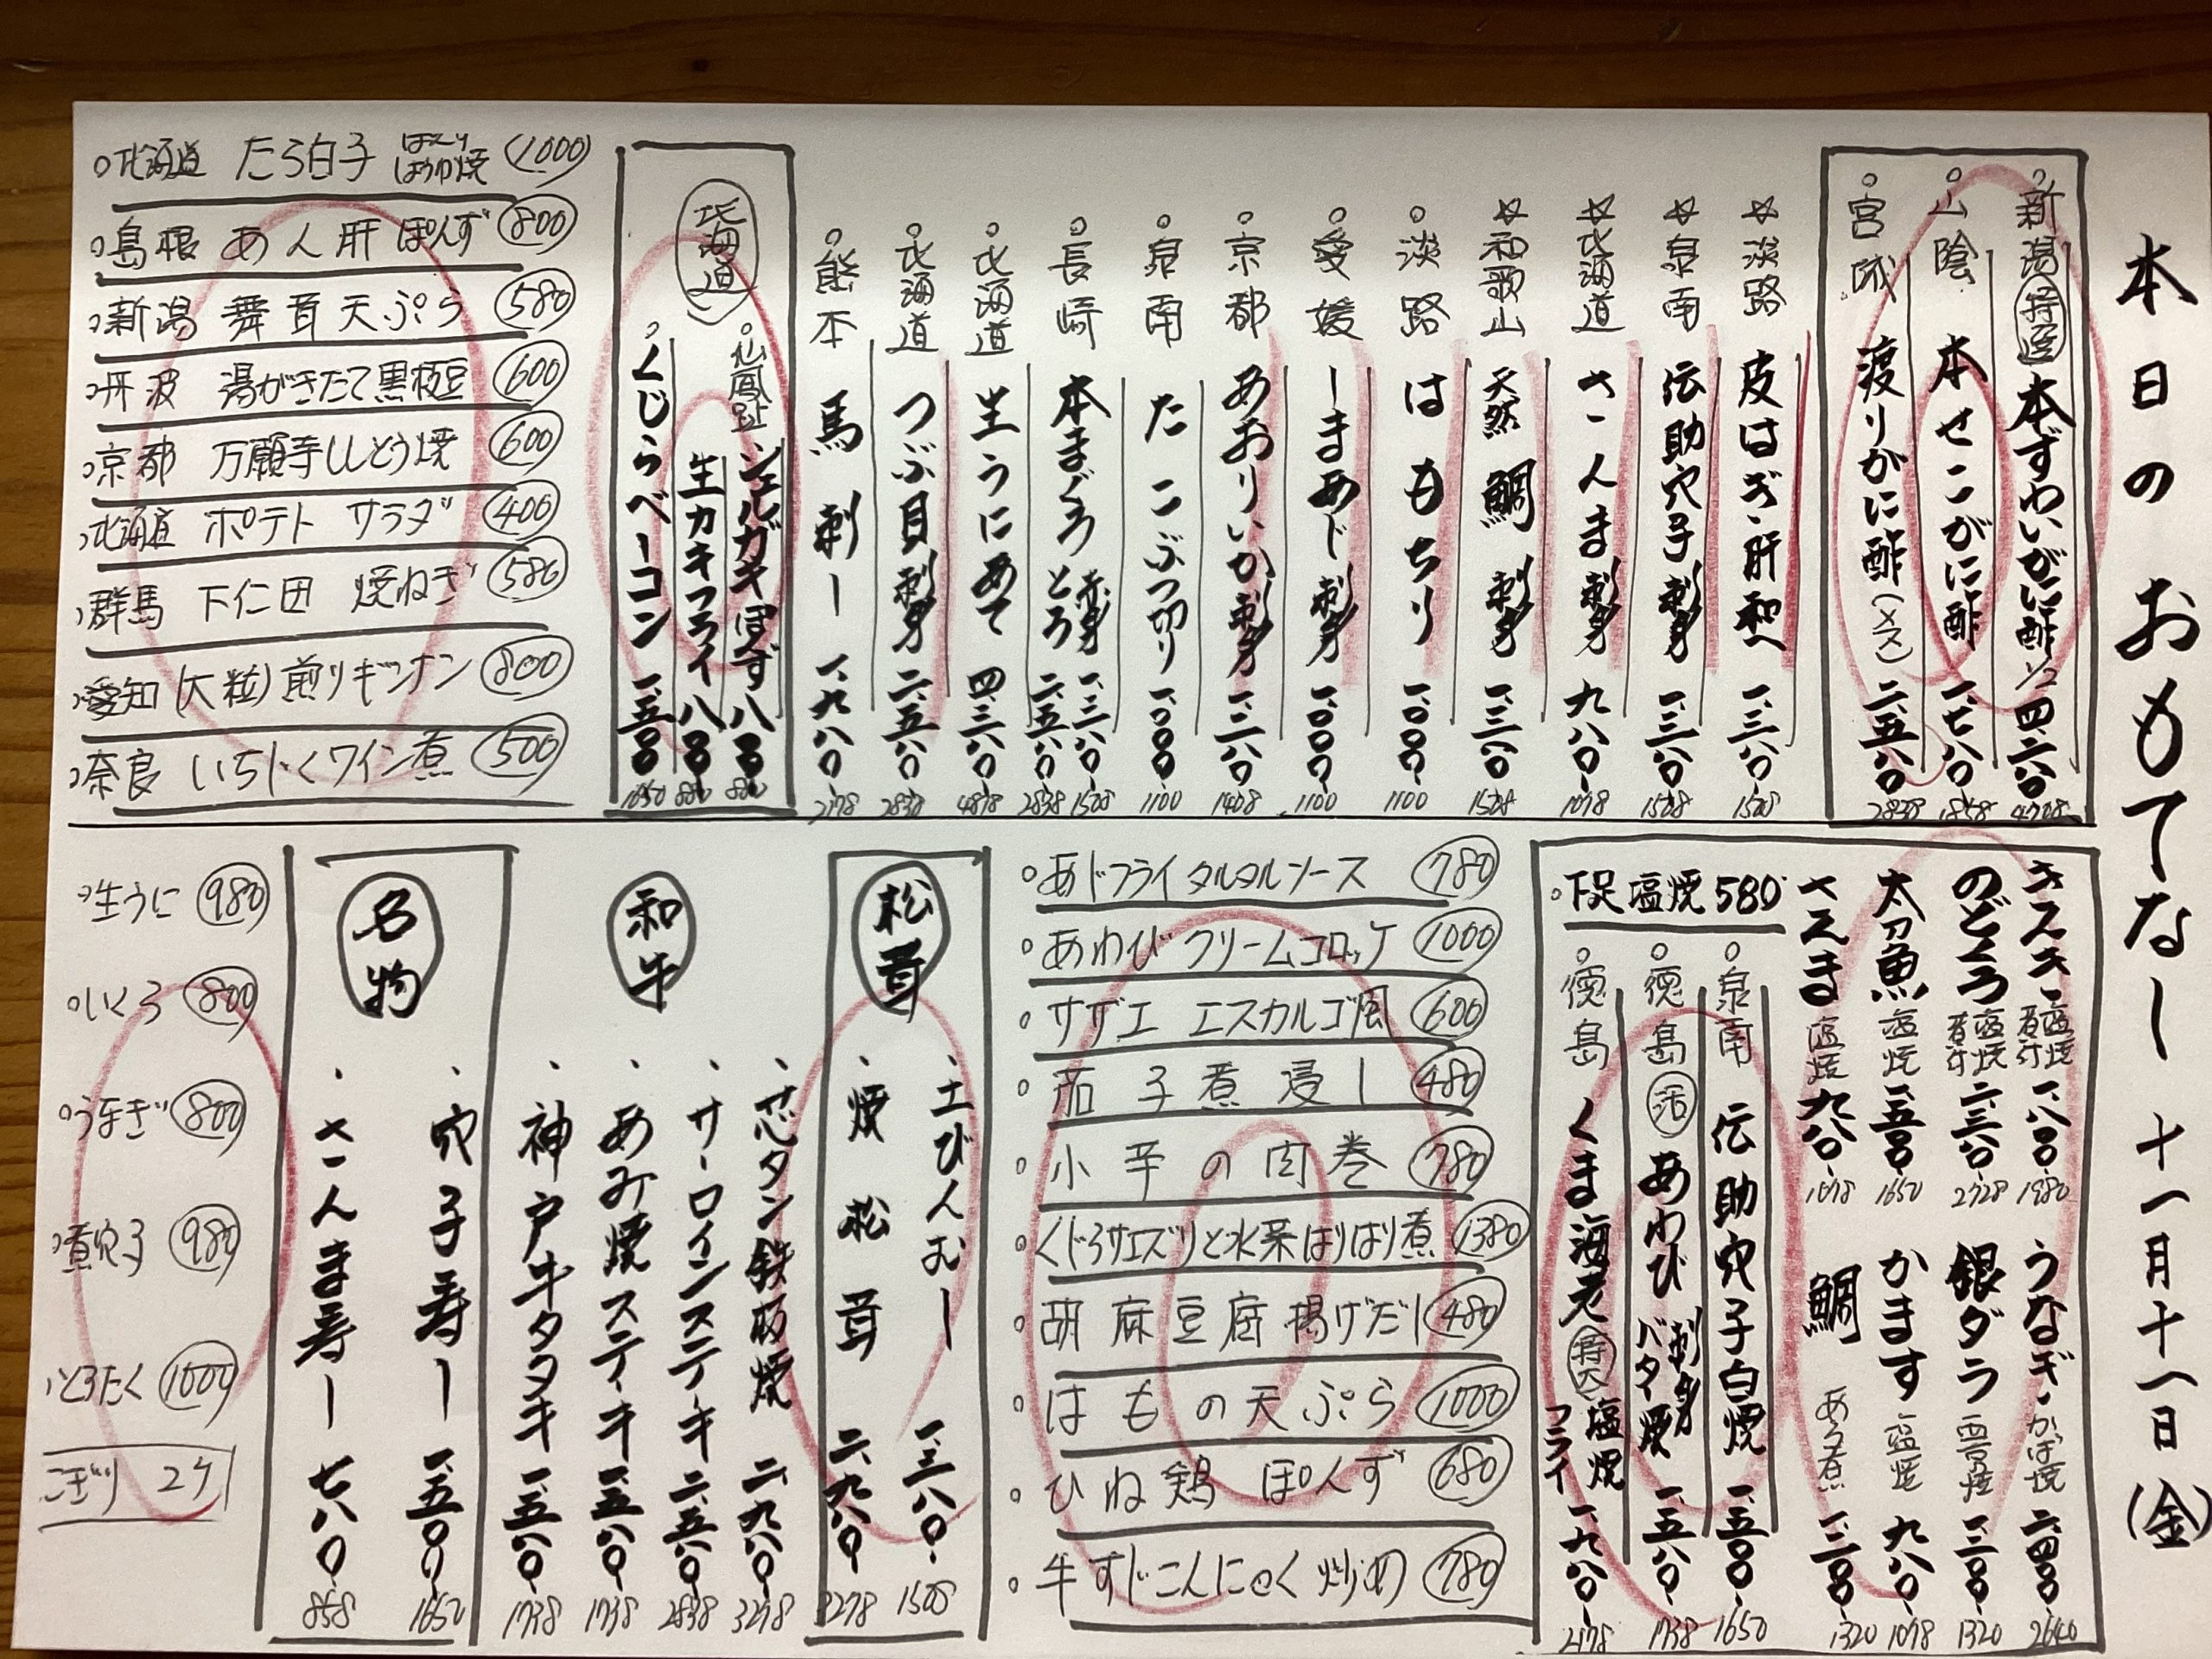 本日のおもてなし 十一月十一日(金)
新潟 特選 本ずわいがに酢 1/2 四、二八〇 4708
山陰 本せこがに酢 一、七八〇 1858
宮城 渡りがに酢(メス) 二、五八〇 2838
☆淡路 皮はぎ肝和へ 一、三八〇 1508
☆泉南 伝助穴子刺身 一、三八〇 1508
☆北海道 さんま刺身 九八〇 1078
☆和歌山 天然 鯛 刺身 一、三八〇 1508
淡路 はもちり 一、〇〇〇 1100
愛媛 しまあじ刺身 一、〇〇〇 1100
京都 あおりいか刺身 一、二八〇 1408
泉南 たこぶつ切り 一、〇〇〇 1100
長崎 本まぐろ 赤身 一、三八〇 1508
とろ 二、五八〇 2838
北海道 生うにあて 四、三八〇 4818
北海道 つぶ貝刺身 二、五八〇 2838
熊本 馬刺し 一、九八〇 2178
北海道
仙鳳趾 シェルガキぽんず 八〇〇 880
生カキフライ 八〇〇 880
くじらベーコン 一、五〇〇 1650
北海道 たら白子 ぽんず ほうば焼 1000
島根 あん肝ぽんず 800
新潟 舞茸天ぷら 580
丹波 湯がきたて黒枝豆 600
京都 万願寺ししとう焼 600
北海道 ポテトサラダ 400
群馬 下仁田 焼ねぎ 580
愛知 (大粒)煎りギンナン 800
奈良 いちじくワイン煮 500
キスキ 塩焼 煮付 一、八〇〇 1980
のどぐろ 塩焼 煮付 二、三八〇 2728
太刀魚 塩焼 一、五〇〇 1650
さんま 塩焼 九八〇 1078
うなぎ かば焼 二、四〇〇 2640
銀ダラ 西京焼 一、二〇〇 1320
かます 塩焼 九八〇 1078
鯛 あら煮 一、二〇〇 1320
下足塩焼 580
泉南 伝助穴子白焼 一、五〇〇 1650
徳島 活 あわび 刺身 バター焼 一、五八〇 1738
徳島 くま海老 特大 塩焼 フライ 一、九八〇 2178
あじフライタルタルソース 780
あわびクリームコロッケ 1000
サザエ エスカルゴ風 600
茄子煮浸し 480
小芋の肉巻 780
くじらサエズリと水菜はりはり煮 1380
胡麻豆腐揚げだし 480
はもの天ぷら 1000
ひね鶏ぽんず 680
牛すじこんにゃく炒め 780
松茸
土びんむし 一、三八〇 1508
焼松茸 二、九八〇 3278
和牛
芯タン鉄板焼 二、九八〇 3278
サーロインステーキ 二、五八〇 2838
あみ焼ステーキ 一、五八〇 1738
神戸牛タタキ 一、五八〇 1738
名物
穴子寿し 一、五〇〇 1650
さんま寿し 七八〇 858
生うに 980
いくら 800
うなぎ 800
煮穴子 980
とろたく 1000
にぎり 2ケ